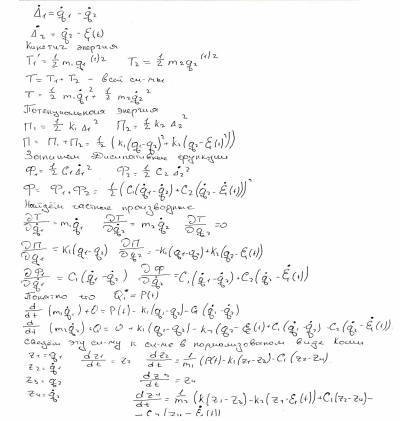 Δ̇₁ = q̇₁ - q̇₂
Δ̇₂ = q̇₂ - ξ̇(t)
Кинетич энергия
T₁' = 1/2 m₁ q₁^(1)2   T₂ = 1/2 m₂ q₂^(1)2
T = T₁ + T₂ - всей си-мы
T = 1/2 m₁ q̇₁² + 1/2 m₂ q̇₂²
Потенциальная энергия
П₁ = 1/2 k₁ Δ₁²   П₂ = 1/2 k₂ Δ₂²
П = П₁ + П₂ = 1/2 (k₁(q₁-q₂)² + k₂(q₂-ξ(t))²)
Запишем Диссипативные функции
Ф₁ = 1/2 C₁ Δ̇₁²   Ф₂ = 1/2 C₂ Δ̇₂²
Ф = Ф₁ + Ф₂ = 1/2 (C₁(q̇₁-q̇₂) + C₂(q̇₂-ξ̇(t)))²
Найдём частные производные
∂T/∂q̇₁ = m₁q̇₁   ∂T/∂q̇₂ = m₂q̇₂   ∂T/∂q₂ = 0
∂П/∂q₁ = k₁(q₁-q₂)   ∂П/∂q₂ = -k₁(q₁-q₂) + k₂(q₂-ξ(t))
= C₁(q̇₁-q̇₂)   = C₁(q̇₁-q̇₂) + C₂(q̇₂-ξ̇(t))
Понятно что Q₁* = P(t)
d/dt (m₁q̇₁) + 0 = P(t) - k₁(q₁-q₂) - C₁(q̇₁-q̇₂)
d/dt (m₂q̇₂) + 0 = 0 + k₁(q₁-q₂) - k₂(q₂-ξ(t)) + C₁(q̇₁-q̇₂) - C₂(q̇₂-ξ̇(t))
Сведём эту си-му к си-ме в нормализованом виде Коши
z₁ = q₁   dz₁/dt = z₂   dz₂/dt = 1/m₁ (P(t) - k₁(z₁-z₃) - C₁(z₂-z₄)
z₂ = q̇₁
z₃ = q₂   dz₃/dt = z₄
z₄ = q̇₂   dz₄/dt = 1/m₂ (k₁(z₁-z₃) - k₂(z₃-ξ(t)) + C₁(z₂-z₄) -
- C₂(z₄-ξ̇(t))